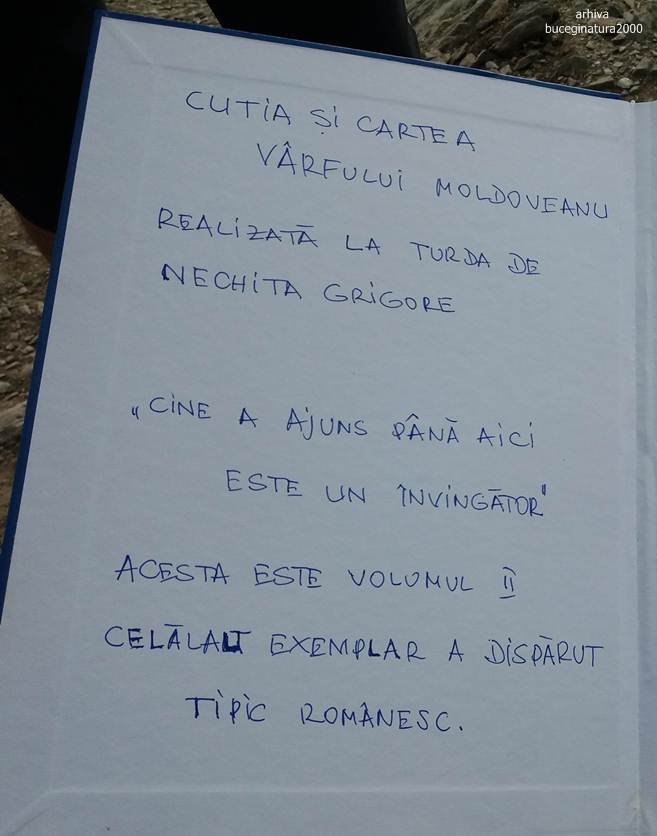 arhiva
buceginatura2000
CUTIA ȘI CARTEA
VÂRFULUI MOLDOVEANU
REALIZATĂ LA TURDA DE
NECHITA GRIGORE
„CINE A AJUNS PÂNĂ AICI
ESTE UN ÎNVINGĂTOR"
ACESTA ESTE VOLUMUL II
CELĂLALT EXEMPLAR A DISPĂRUT
TIPIC ROMÂNESC.